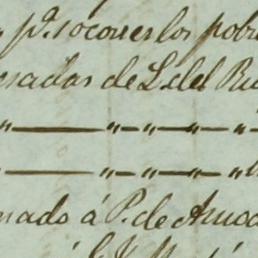 pª. socorrer los pobr
esadas de L. del Ri
" — " — " — " — "
— " — " — " — "
nado á P. de Amo